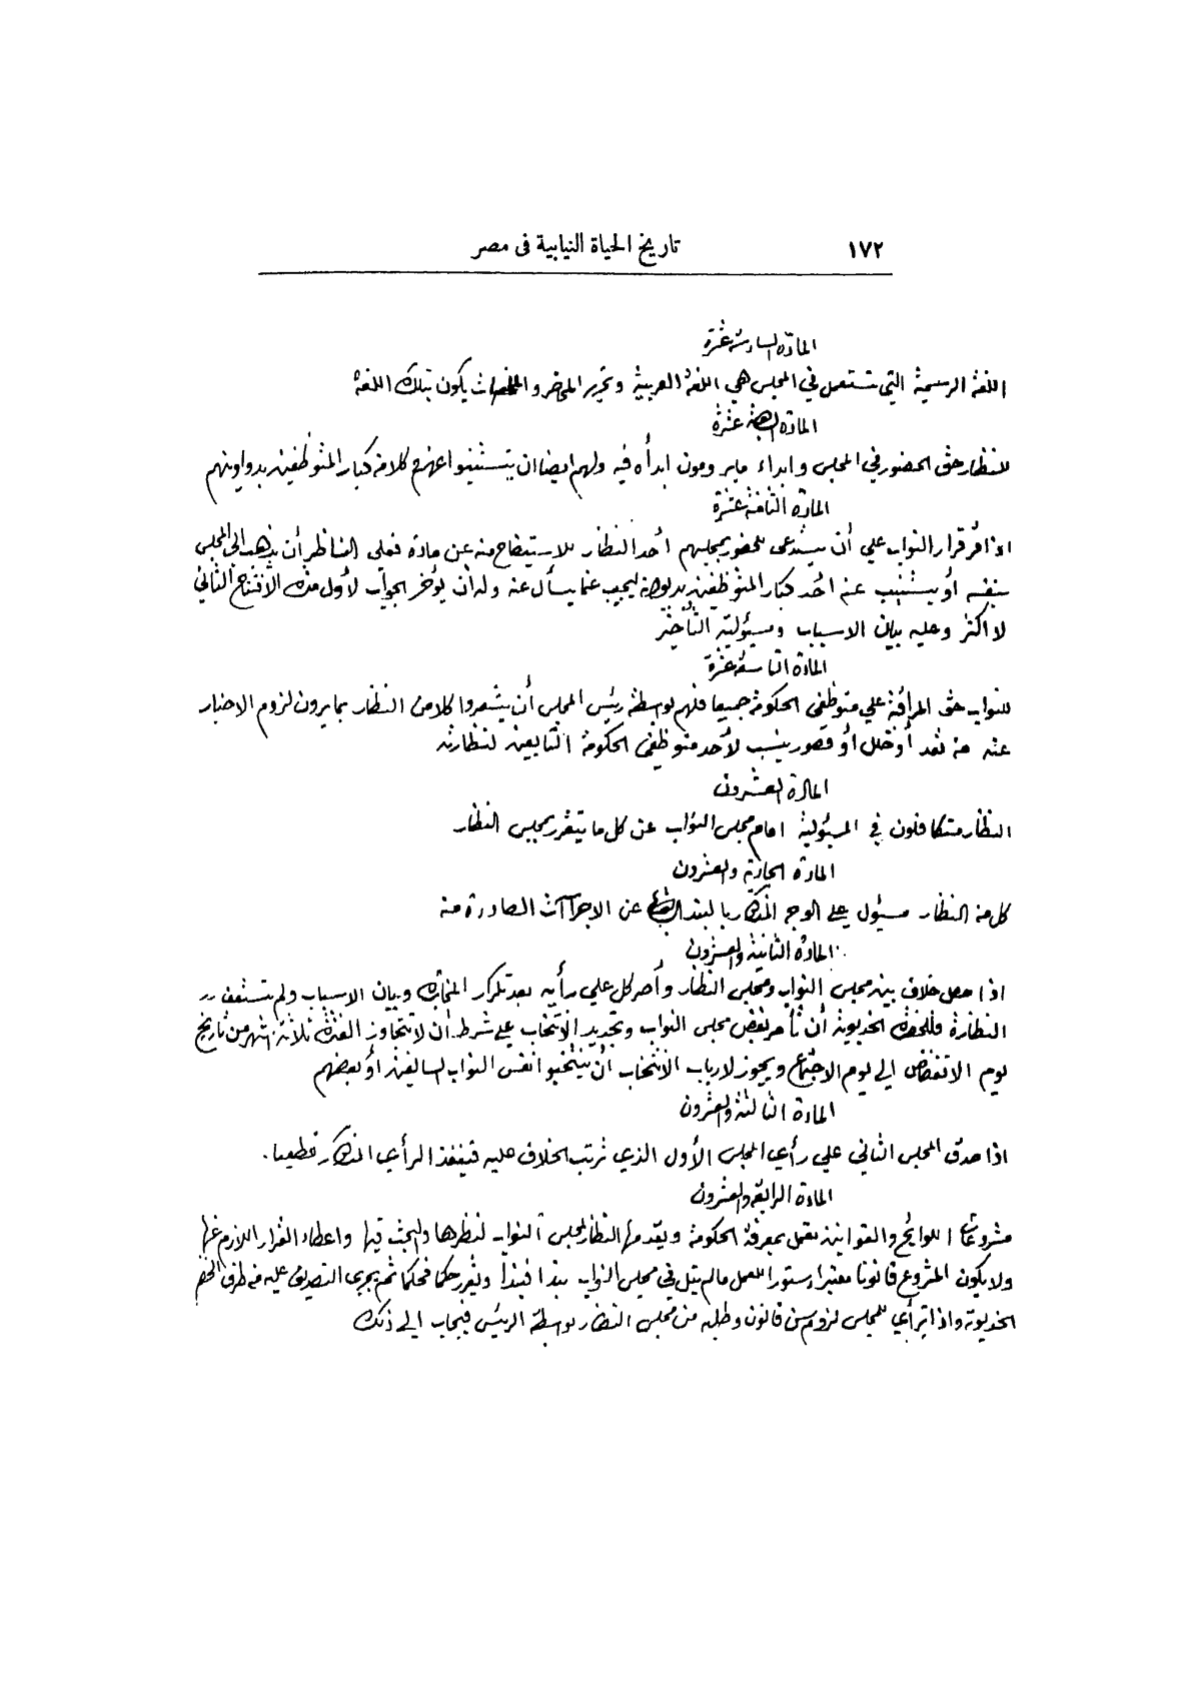 ١٧٢
تاريخ الحياة النيابية فى مصر
المادّة السادسة عشرة
اللغة الرسمية التي تستعمل في المجلس هي اللغة العربية وتحرير المحاضر والملخصات يكون بتلك اللغة
المادة السابعة عشرة
للنظار حق الحضور في المجلس وابداء ما يرومون ابدأه فيه ولهم ايضا ان يستنيبوا عنهم كلا من كبار المتوظفين بدواوينهم
المادة الثامنة عشرة
اذا قر قرار النواب علي أن يستدعى للحضور بمجلسهم أحد النظار للاستيضاح منه عن مادة فعلي الناظر أن يذهب الى المجلس
بنفسه أو يستنيب عنه أحد كبار المتوظفين بديوانه ليجيب عما يسأل عنه وله أن يؤخر الجواب لأول مدة الافتتاح الثاني
لا اكثر وعليه بيان الاسباب ومسؤلية التأخير
المادة التاسعة عشرة
للنواب حق المراقبة علي متوظفى الحكومة جميعا فلهم بواسطة رئيس المجلس أن يشعروا كلا من النظار بما يرون لزوم الاخبار
عنه من تعد أو خلل أو قصور ينسب لأحد متوظفى الحكومة التابعين لنظارته
المادة العشرون
النظار متكافلون في المسؤلية امام مجلس النواب عن كل ما يتقرر بمجلس النظار
المادة الحادية والعشرون
كل من النظار مسؤل على الوجه المذكور بالبند السابق عن الاجرآآت الصادرة منه
المادة الثانية والعشرون
اذا حصل خلاف بين مجلس النواب ومجلس النظار وأصر كل علي رأيه بعد تكرار المخابرة وبيان الاسباب ولم تستعف
النظارة فللحضرة الخديوية أن تأمر بفض مجلس النواب وتجديد الانتخاب على شرط أن لا تتجاوز الفترة ثلاثة اشهر من تاريخ
يوم الانفضاض الى يوم الاجتماع ويجوز لارباب الانتخاب أن ينتخبوا نفس النواب السالفين أو بعضهم
المادة الثالثة والعشرون
اذا صدق المجلس الثاني علي رأي المجلس الأول الذي ترتب الخلاف عليه فينفذ الرأي المذكور قطعيا .
المادة الرابعة والعشرون
مشروعات اللوائح والقوانين تعمل بمعرفة الحكومة ويقدمها النظار لمجلس النواب لنظرها والبحث فيها واعطاء القرار اللازم عنها
ولا يكون المشروع قانونا معتبرا دستورا للعمل ما لم يتل في مجلس النواب بندا فبندا ويقرر حكما فحكما ثم يجرى التصديق عليه من طرف الحضرة
الخديوية واذا ترأي للمجلس لزوم سن قانون وطلبه من مجلس النظار بواسطة الرئيس فيجاب الى ذلك